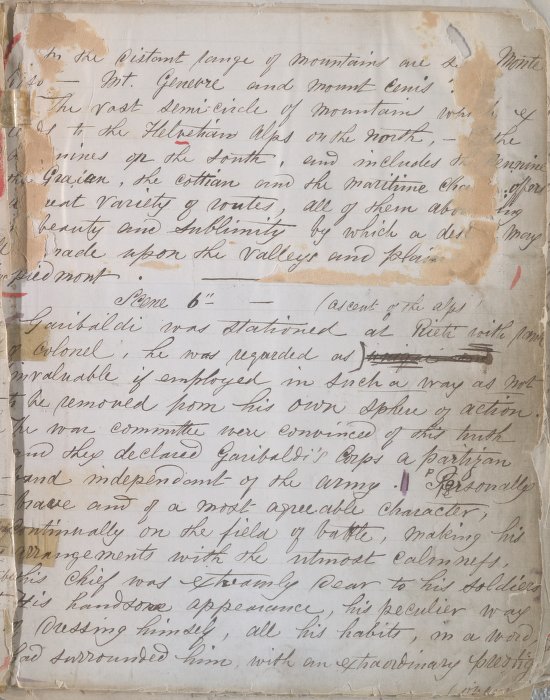 In the distant range of mountains are se Monte
Viso — Mt. Genevre and mount Cenis
The vast semicircle of mountains which ex
to the Helvetian Alps on the north, – the
nines on the south, and includes the Pennine
the Graian, the cottian and the maritime cha offers
variety of routes, all of them abo ing
beauty and sublimity by which a des may
made upon the valleys and plain
piedmont.
Scene 6" — (ascent of the alps)
Garibaldi was stationed at Rieti with rank
of colonel, he was regarded as
invaluable if employed in such a way as not
to be removed from his own sphere of action.
The war committee were convinced of this truth
and they declared Garibaldi's Corps a partizan
band independant of the army. "Personally
brave and of a most agreeable character,
continually on the field of battle, making his
arrangements with the utmost calmness,
this chief was extreamly dear to his soldiers
His handsome appearance, his peculier way
of dressing himself, all his habits, in a word,
had surrounded him, with an extraordinary prestig